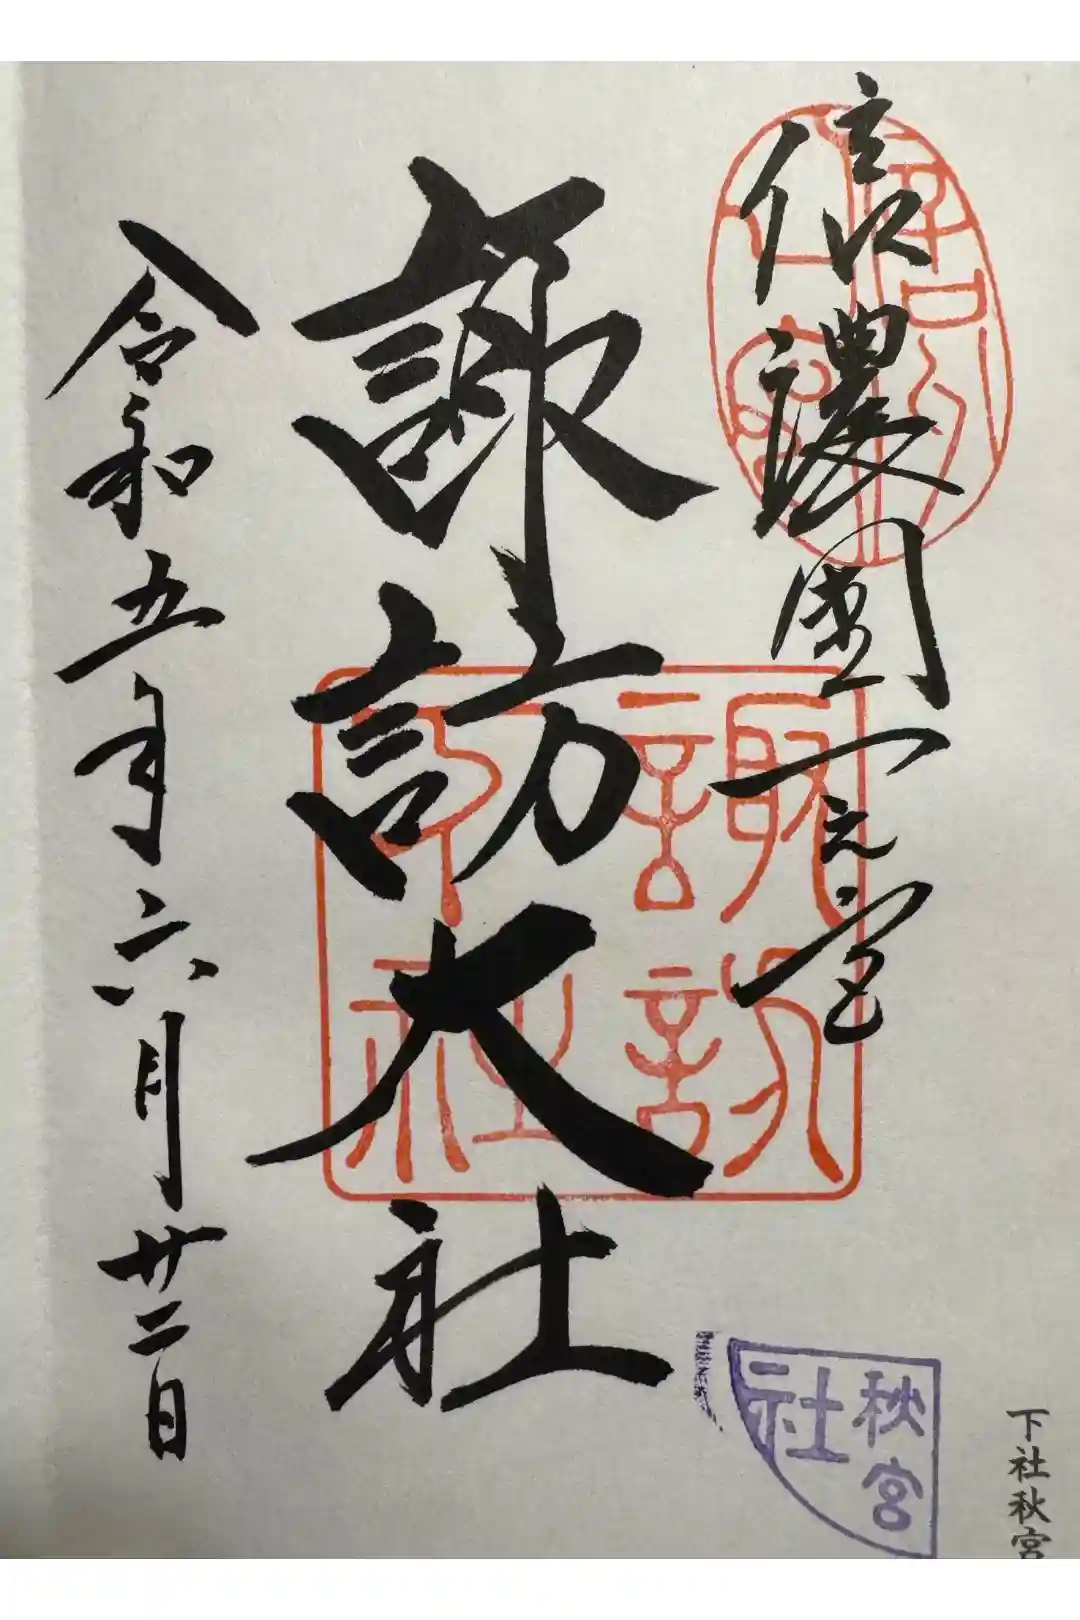 信濃國一之宮
諏訪大社
令和五年六月廿二日
信濃國
一之宮
諏訪
大社
秋宮
社
下社秋宮